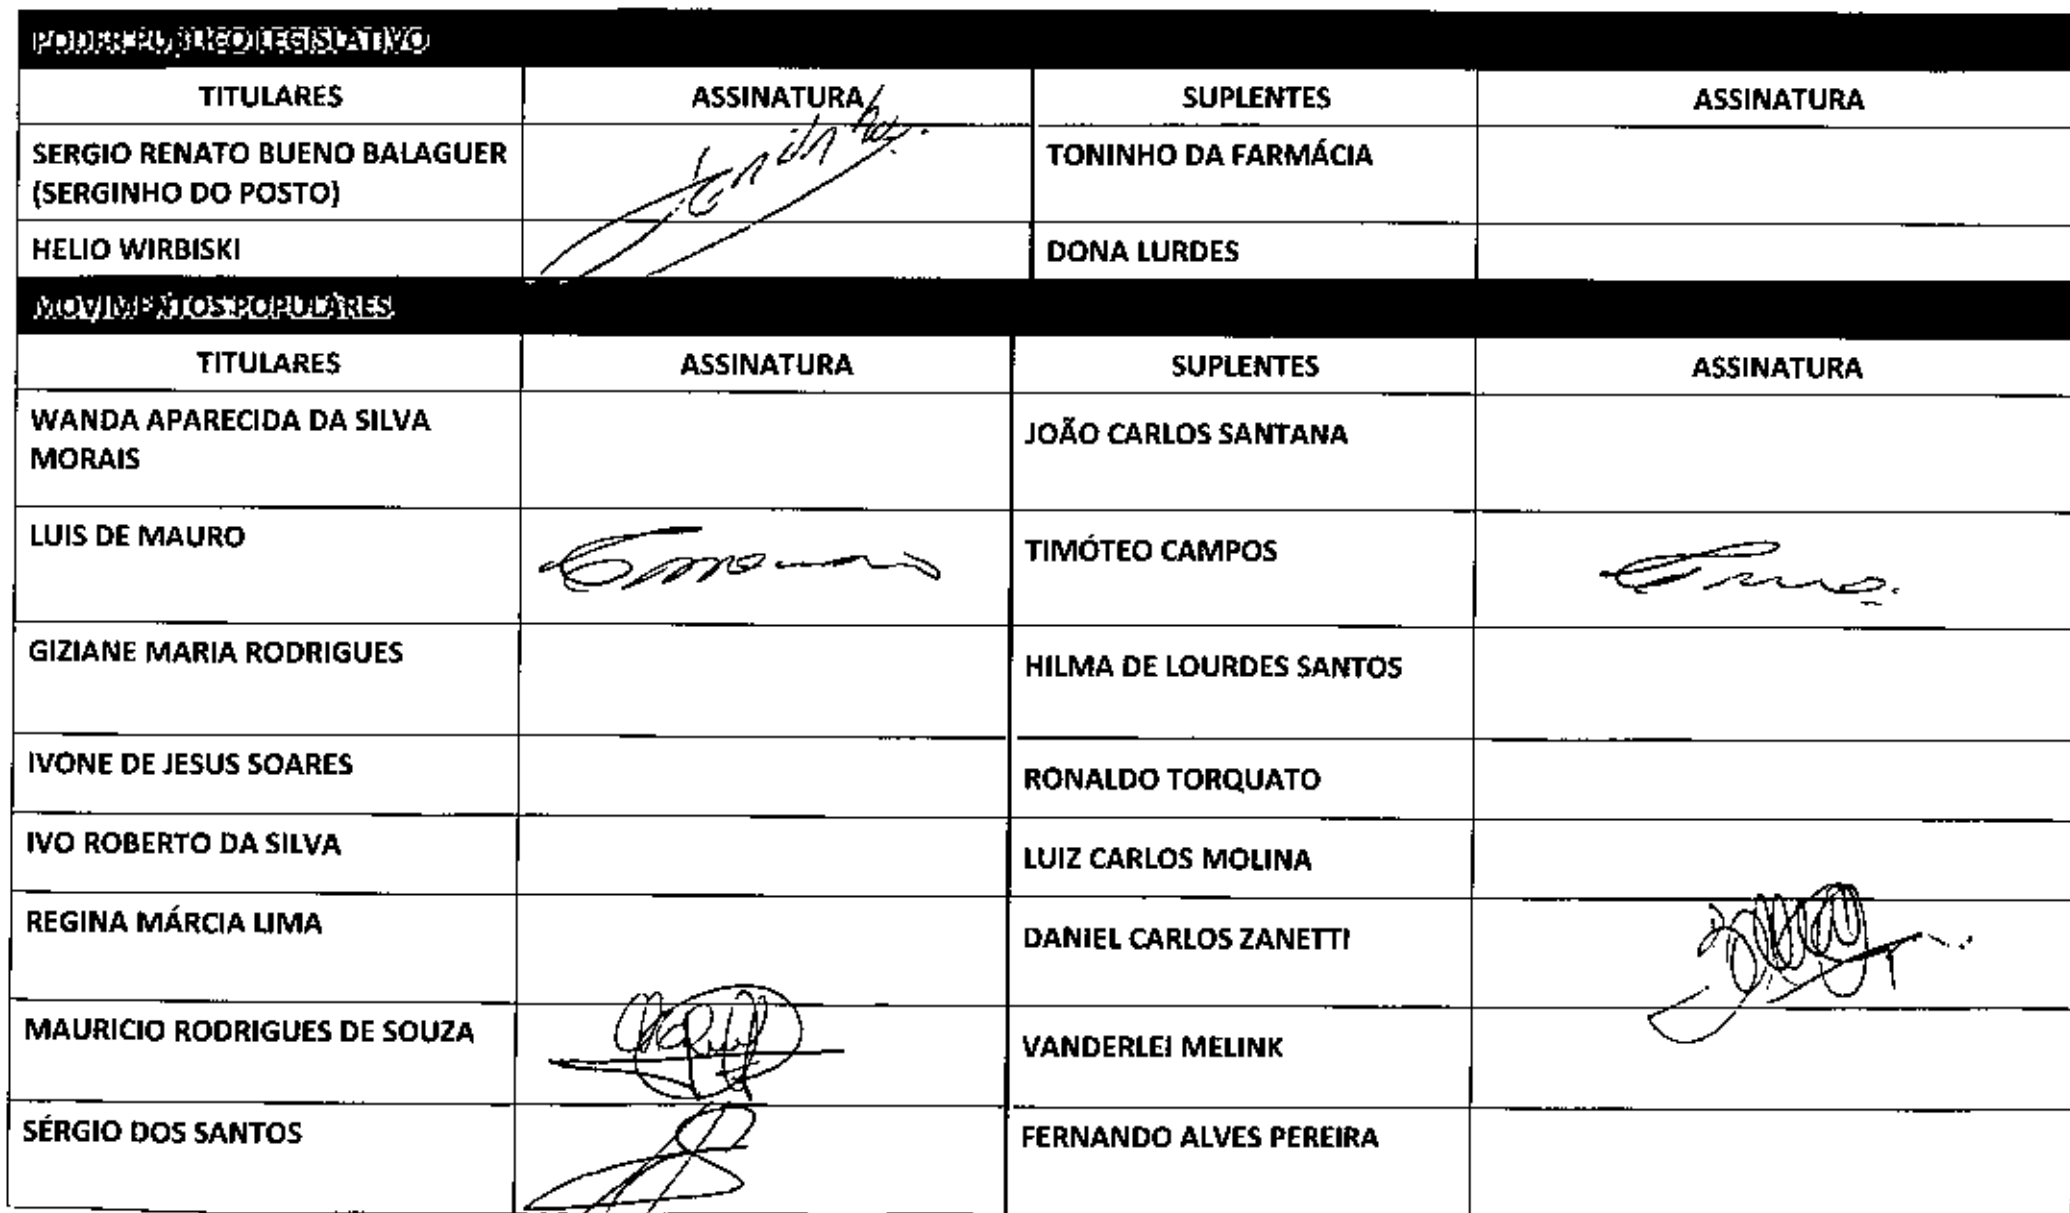 PODER PUBLICO LEGISLATIVO
TITULARES ASSINATURA SUPLENTES ASSINATURA
SERGIO RENATO BUENO BALAGUER
(SERGINHO DO POSTO)
TONINHO DA FARMÁCIA
HELIO WIRBISKI
DONA LURDES
MOVIMENTOS POPULARES
TITULARES ASSINATURA SUPLENTES ASSINATURA
WANDA APARECIDA DA SILVA
MORAIS
JOÃO CARLOS SANTANA
LUIS DE MAURO
TIMÓTEO CAMPOS
GIZIANE MARIA RODRIGUES
HILMA DE LOURDES SANTOS
IVONE DE JESUS SOARES
RONALDO TORQUATO
IVO ROBERTO DA SILVA
LUIZ CARLOS MOLINA
REGINA MÁRCIA LIMA
DANIEL CARLOS ZANETTI
MAURICIO RODRIGUES DE SOUZA
VANDERLEI MELINK
SÉRGIO DOS SANTOS
FERNANDO ALVES PEREIRA